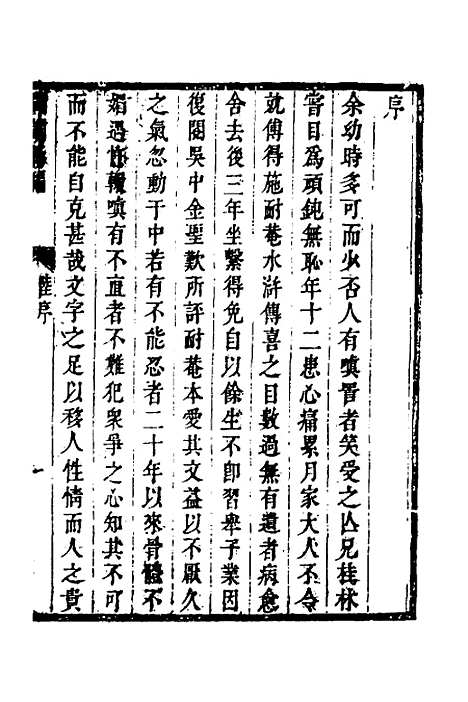 序
余幼時多可而少否人有嗔詈者笑受之亾兄桂林
嘗目爲頑鈍無恥年十二患心痛累月家大人不令
就傅得施耐菴水滸傳喜之日數過無有遺者病愈
舍去後三年坐繫得免自以餘生不卽習舉子業因
復閱吳中金聖歎所評耐菴本愛其文益以不厭久
之氣忽動于中若有不能忍者二十年以來骨體不
媚遇 輒嗔有不直者不難犯衆爭之心知其不可
而不能自克甚哉文字之足以移人性情而人之貴
序
一